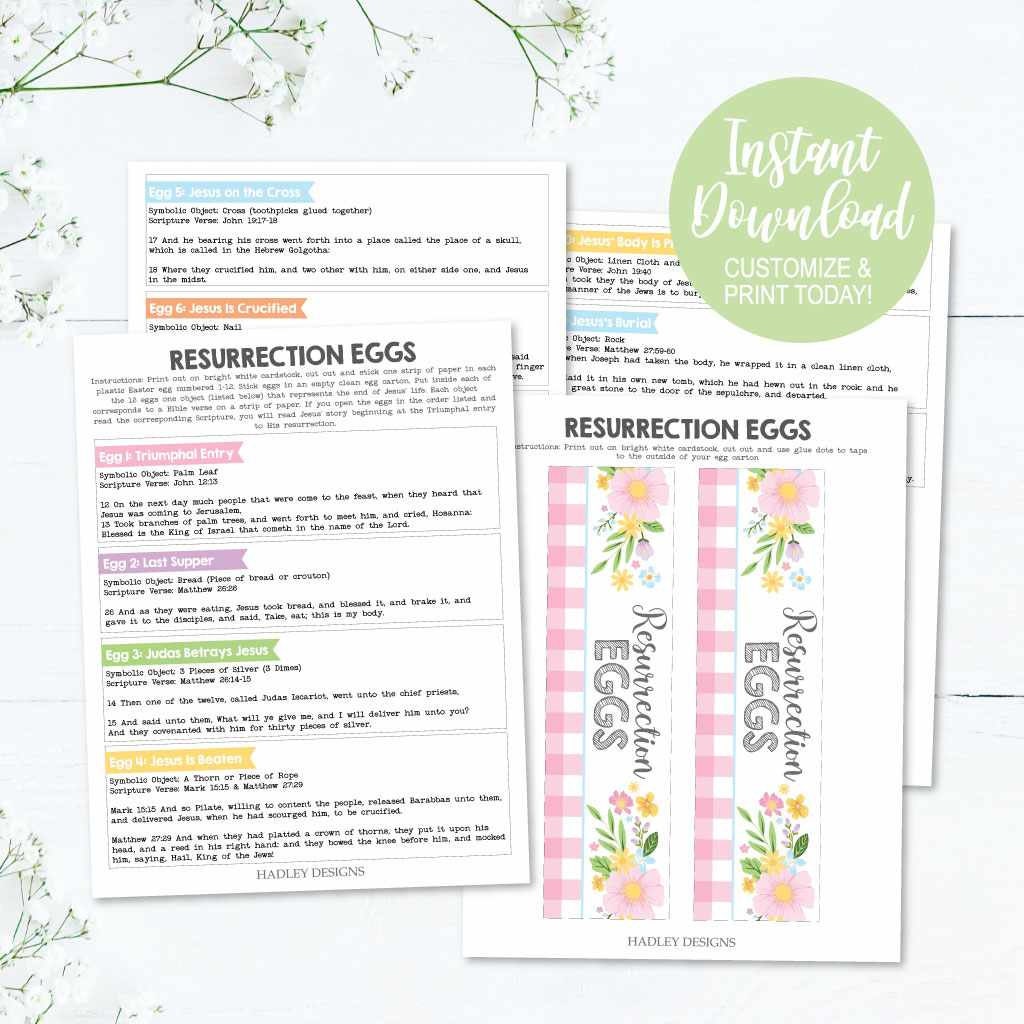 Instant
Download
CUSTOMIZE &
PRINT TODAY!
Egg 5: Jesus on the Cross
Symbolic Object: Cross (toothpicks glued together)
Scripture Verse: John 19:17-18
17 And he bearing his cross went forth into a place called the place of a skull,
which is called in the Hebrew Golgotha:
18 Where they crucified him, and two other with him, on either side one, and Jesus
in the midst.
Egg 6: Jesus Is Crucified
Symbolic Object: Nail
said
finger
Jesus' Body Is
Symbolic Object: Linen Cloth and
Verse: John 19:40
took they the body of
manner of the Jews is to
Jesus's Burial
Object: Rock
Verse: Matthew 27:59-60
when Joseph had taken the body, he wrapped it in a clean linen cloth,
laid it in his own new tomb, which he had hewn out in the rock: and he
great stone to the door of the sepulchre, and departed.
RESURRECTION EGGS
Instructions: Print out on bright white cardstock, cut out and stick one strip of paper in each
plastic Easter egg numbered 1-12. Stick eggs in an empty clean egg carton. Put inside each of
the 12 eggs one object (listed below) that represents the end of Jesus' life. Each object
corresponds to a Bible verse on a strip of paper. If you open the eggs in the order listed and
read the corresponding Scripture, you will read Jesus' story beginning at the Triumphal entry
to His resurrection.
Egg 1: Triumphal Entry
Symbolic Object: Palm Leaf
Scripture Verse: John 12:13
12 On the next day much people that were come to the feast, when they heard that
Jesus was coming to Jerusalem,
13 Took branches of palm trees, and went forth to meet him, and cried, Hosanna:
Blessed is the King of Israel that cometh in the name of the Lord.
Egg 2: Last Supper
Symbolic Object: Bread (Piece of bread or crouton)
Scripture Verse: Matthew 26:26
26 And as they were eating, Jesus took bread, and blessed it, and brake it, and
gave it to the disciples, and said, Take, eat; this is my body.
Egg 3: Judas Betrays Jesus
Symbolic Object: 3 Pieces of Silver (3 Dimes)
Scripture Verse: Matthew 26:14-15
14 Then one of the twelve, called Judas Iscariot, went unto the chief priests,
15 And said unto them, What will ye give me, and I will deliver him unto you?
And they covenanted with him for thirty pieces of silver.
Egg 4: Jesus Is Beaten
Symbolic Object: A Thorn or Piece of Rope
Scripture Verse: Mark 15:15 & Matthew 27:29
Mark 15:15 And so Pilate, willing to content the people, released Barabbas unto them,
and delivered Jesus, when he had scourged him, to be crucified.
Matthew 27:29 And when they had platted a crown of thorns, they put it upon his
head, and a reed in his right hand: and they bowed the knee before him, and mocked
him, saying, Hail, King of the Jews!
HADLEY DESIGNS
RESURRECTION EGGS
Instructions: Print out on bright white cardstock, cut out and use glue dots to tape
to the outside of your egg carton
Resurrection
EGGS
Resurrection
EGGS
HADLEY DESIGNS